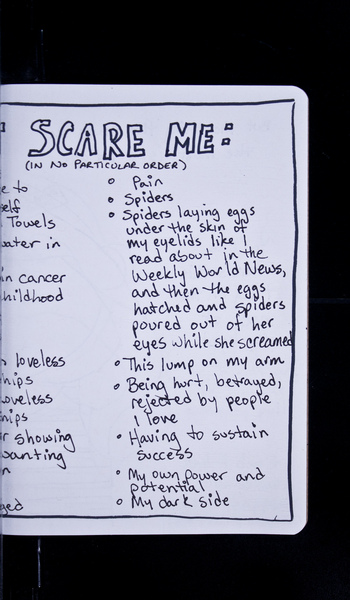 SCARE ME:
(IN NO PARTICULAR ORDER)
e to
self
Towels
water in
in cancer
childhood
s loveless
hips
loveless
hips
r showing
wanting
n
ged
• Pain
• Spiders
• Spiders laying eggs
under the skin of
my eyelids like I
read about in the
Weekly World News,
and then the eggs
hatched and spiders
poured out of her
eyes while she screamed
• This lump on my arm
• Being hurt, betrayed,
rejected by people
I love
• Having to sustain
success
• My own power and
potential
• My dark side